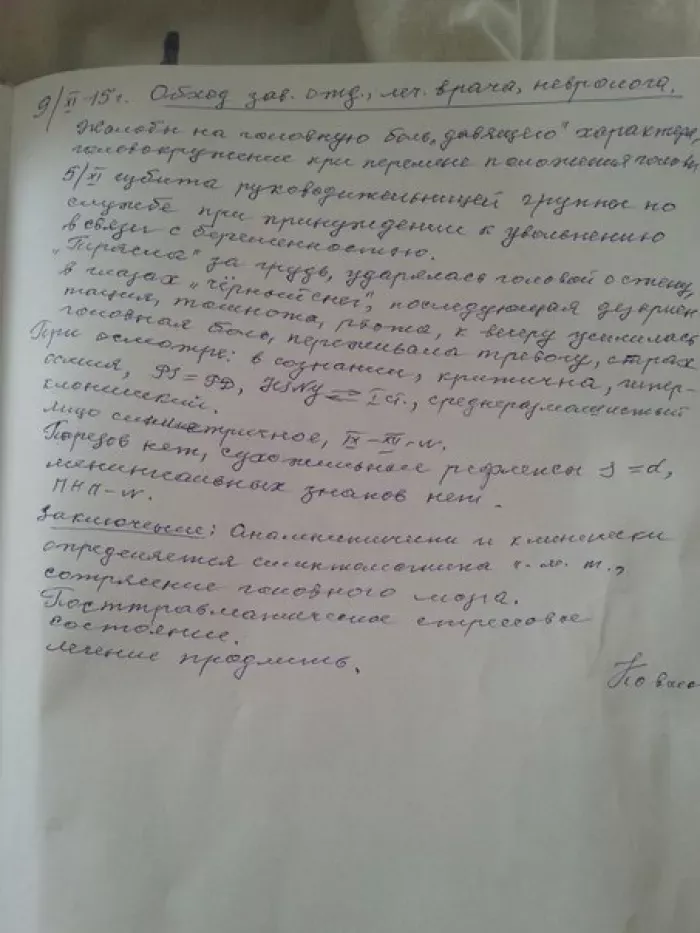 9/XI-15г. Обход зав. отд., леч. врача, невролога.
Жалобы на головную боль „давящего" характера,
головокружение при перемене положения головы
5/XI избита руководительницей группы по
службе при принуждении к увольнению
в связи с беременностью.
„Трясла" за грудь, ударялась головой о стену
в глазах „чёрный снег", последующая дезориен
тация, тошнота, рвота, к вечеру усилилась
головная боль, переживала тревогу, страх
При осмотре: в сознании, критична, гипер-
осмия, PS = PD, HSNy ⇄ I ст., среднеразмашистый
клонический.
лицо симметричное, IX – XII - N.
Парезов нет, сухожильные рефлексы s = d,
менингеальных знаков нет.
ПНП – N.
Заключение: Анамнестически и клинически
определяется симптоматика ч. м. т.,
сотрясение головного мозга.
Посттравматическое стрессовое
состояние.
лечение продлить.